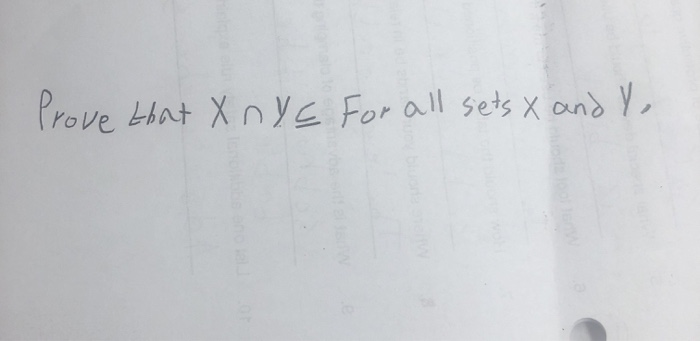 Prove that X ∩ Y ⊆ For all sets X and Y.